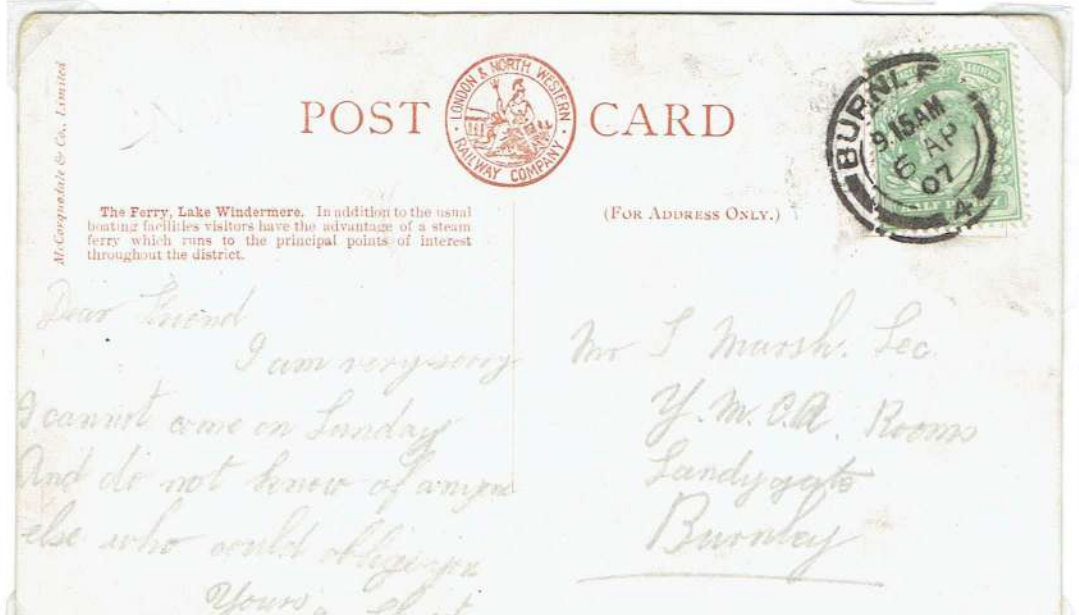 McCorquodale & Co., Limited
POST CARD
LONDON & NORTH WESTERN
RAILWAY COMPANY
The Ferry, Lake Windermere. In addition to the usual
boating facilities visitors have the advantage of a steam
ferry which runs to the principal points of interest
throughout the district.
(FOR ADDRESS ONLY.)
BURNLEY
9.15AM
6 AP
07
4
Dear Friend
I am very sorry
I cannot come on Sunday
And do not know of anyone
else who could oblige you
Yours
Mr S Marsh. Sec.
Y.M.C.A. Rooms
Sandygate
Burnley